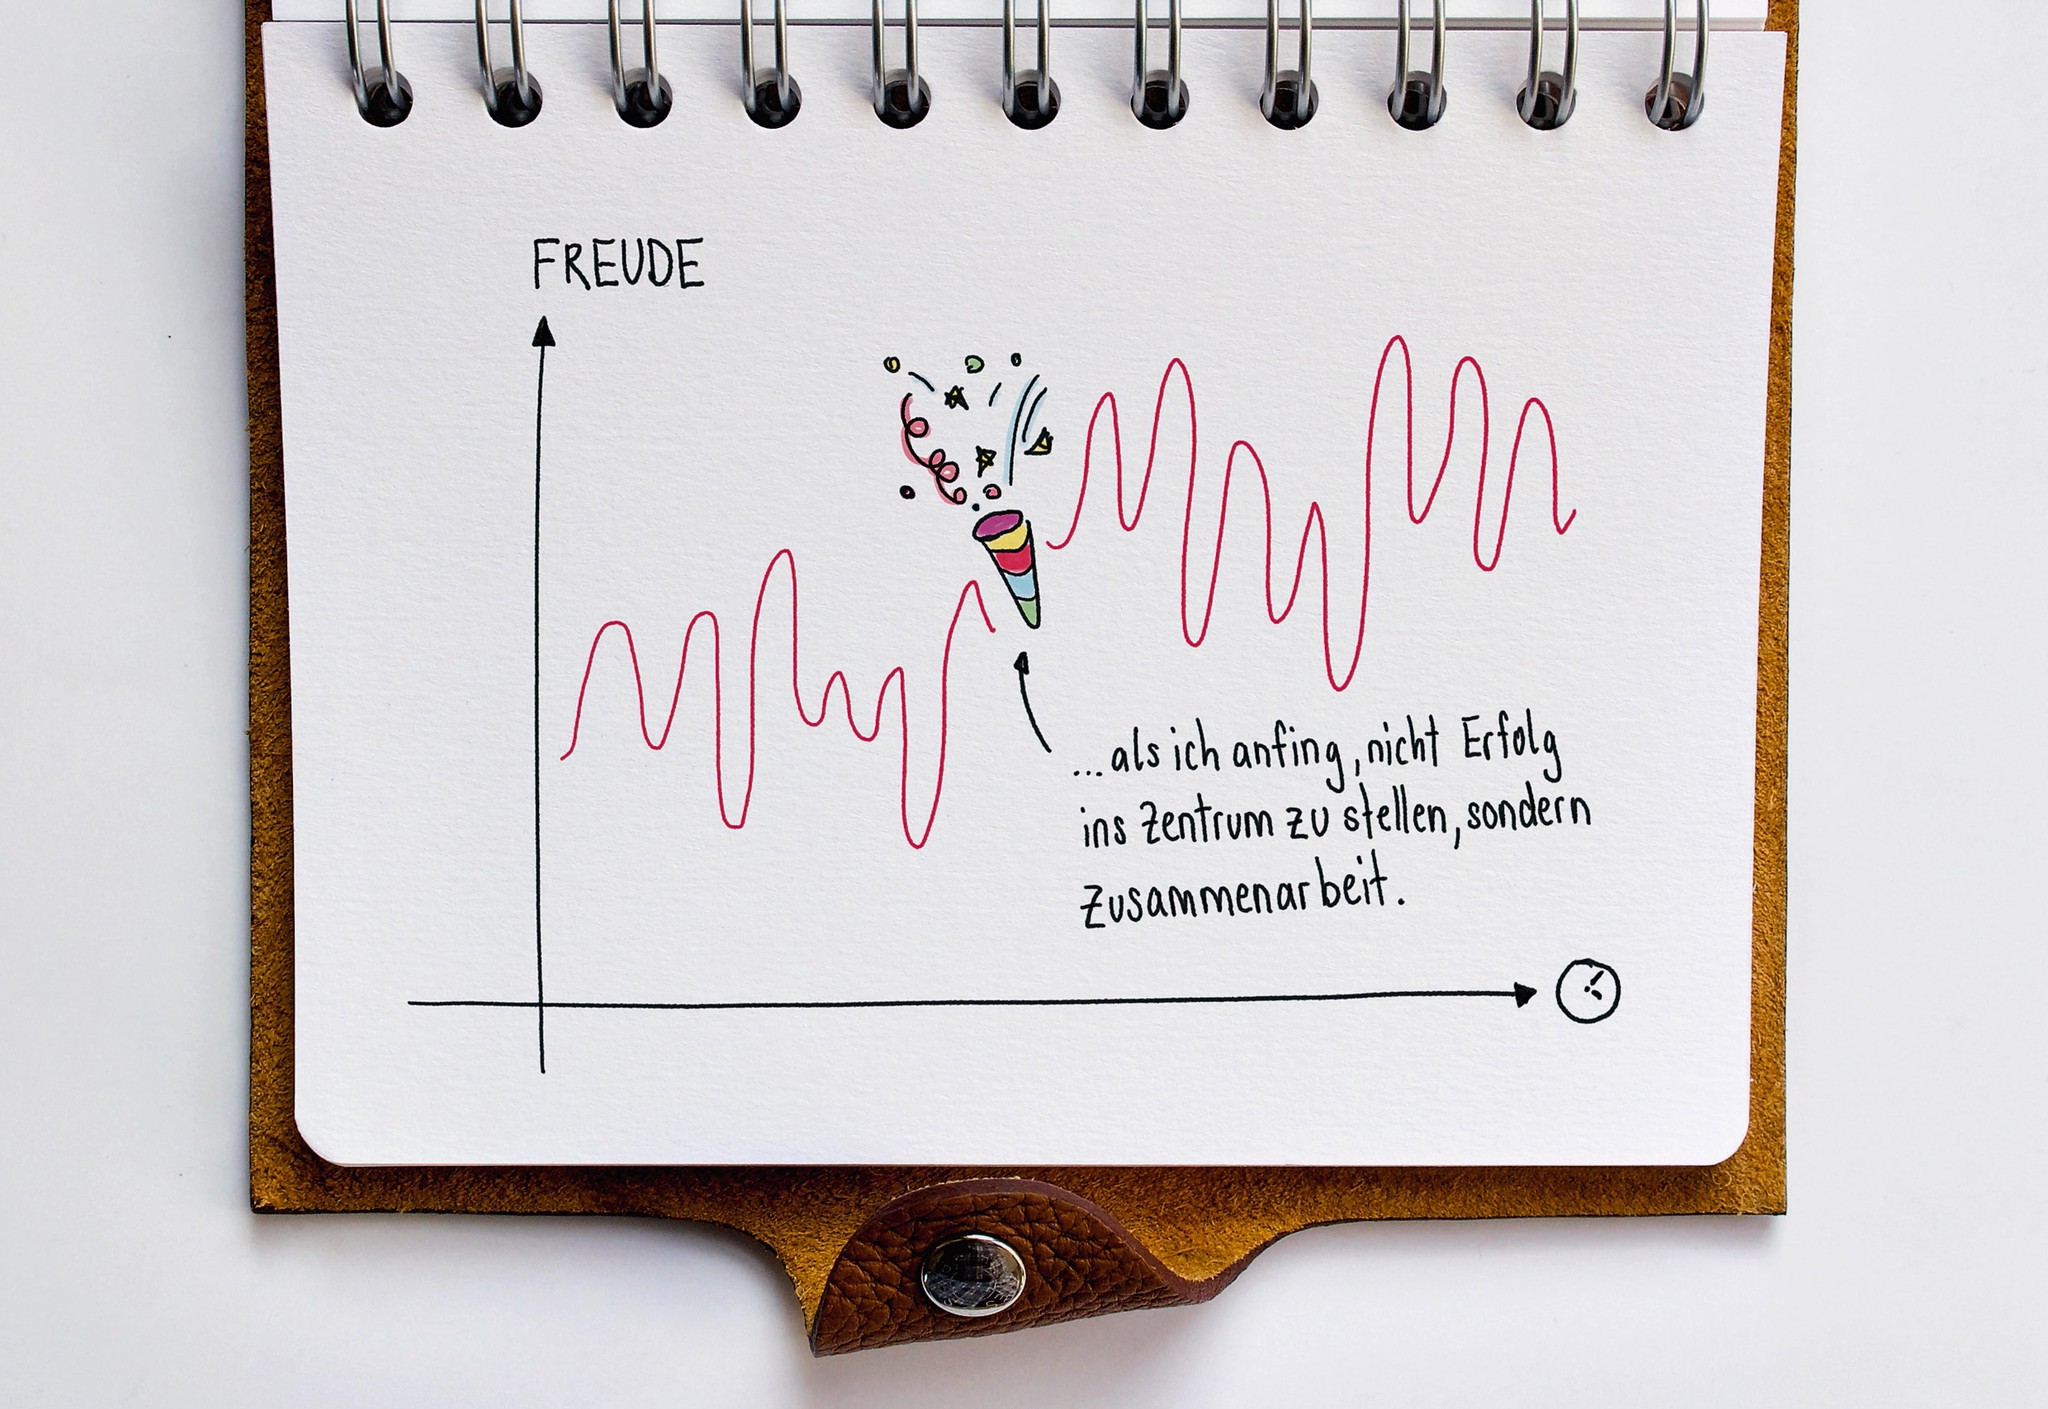 FREUDE
...als ich anfing, nicht Erfolg
ins Zentrum zu stellen, sondern
Zusammenarbeit.